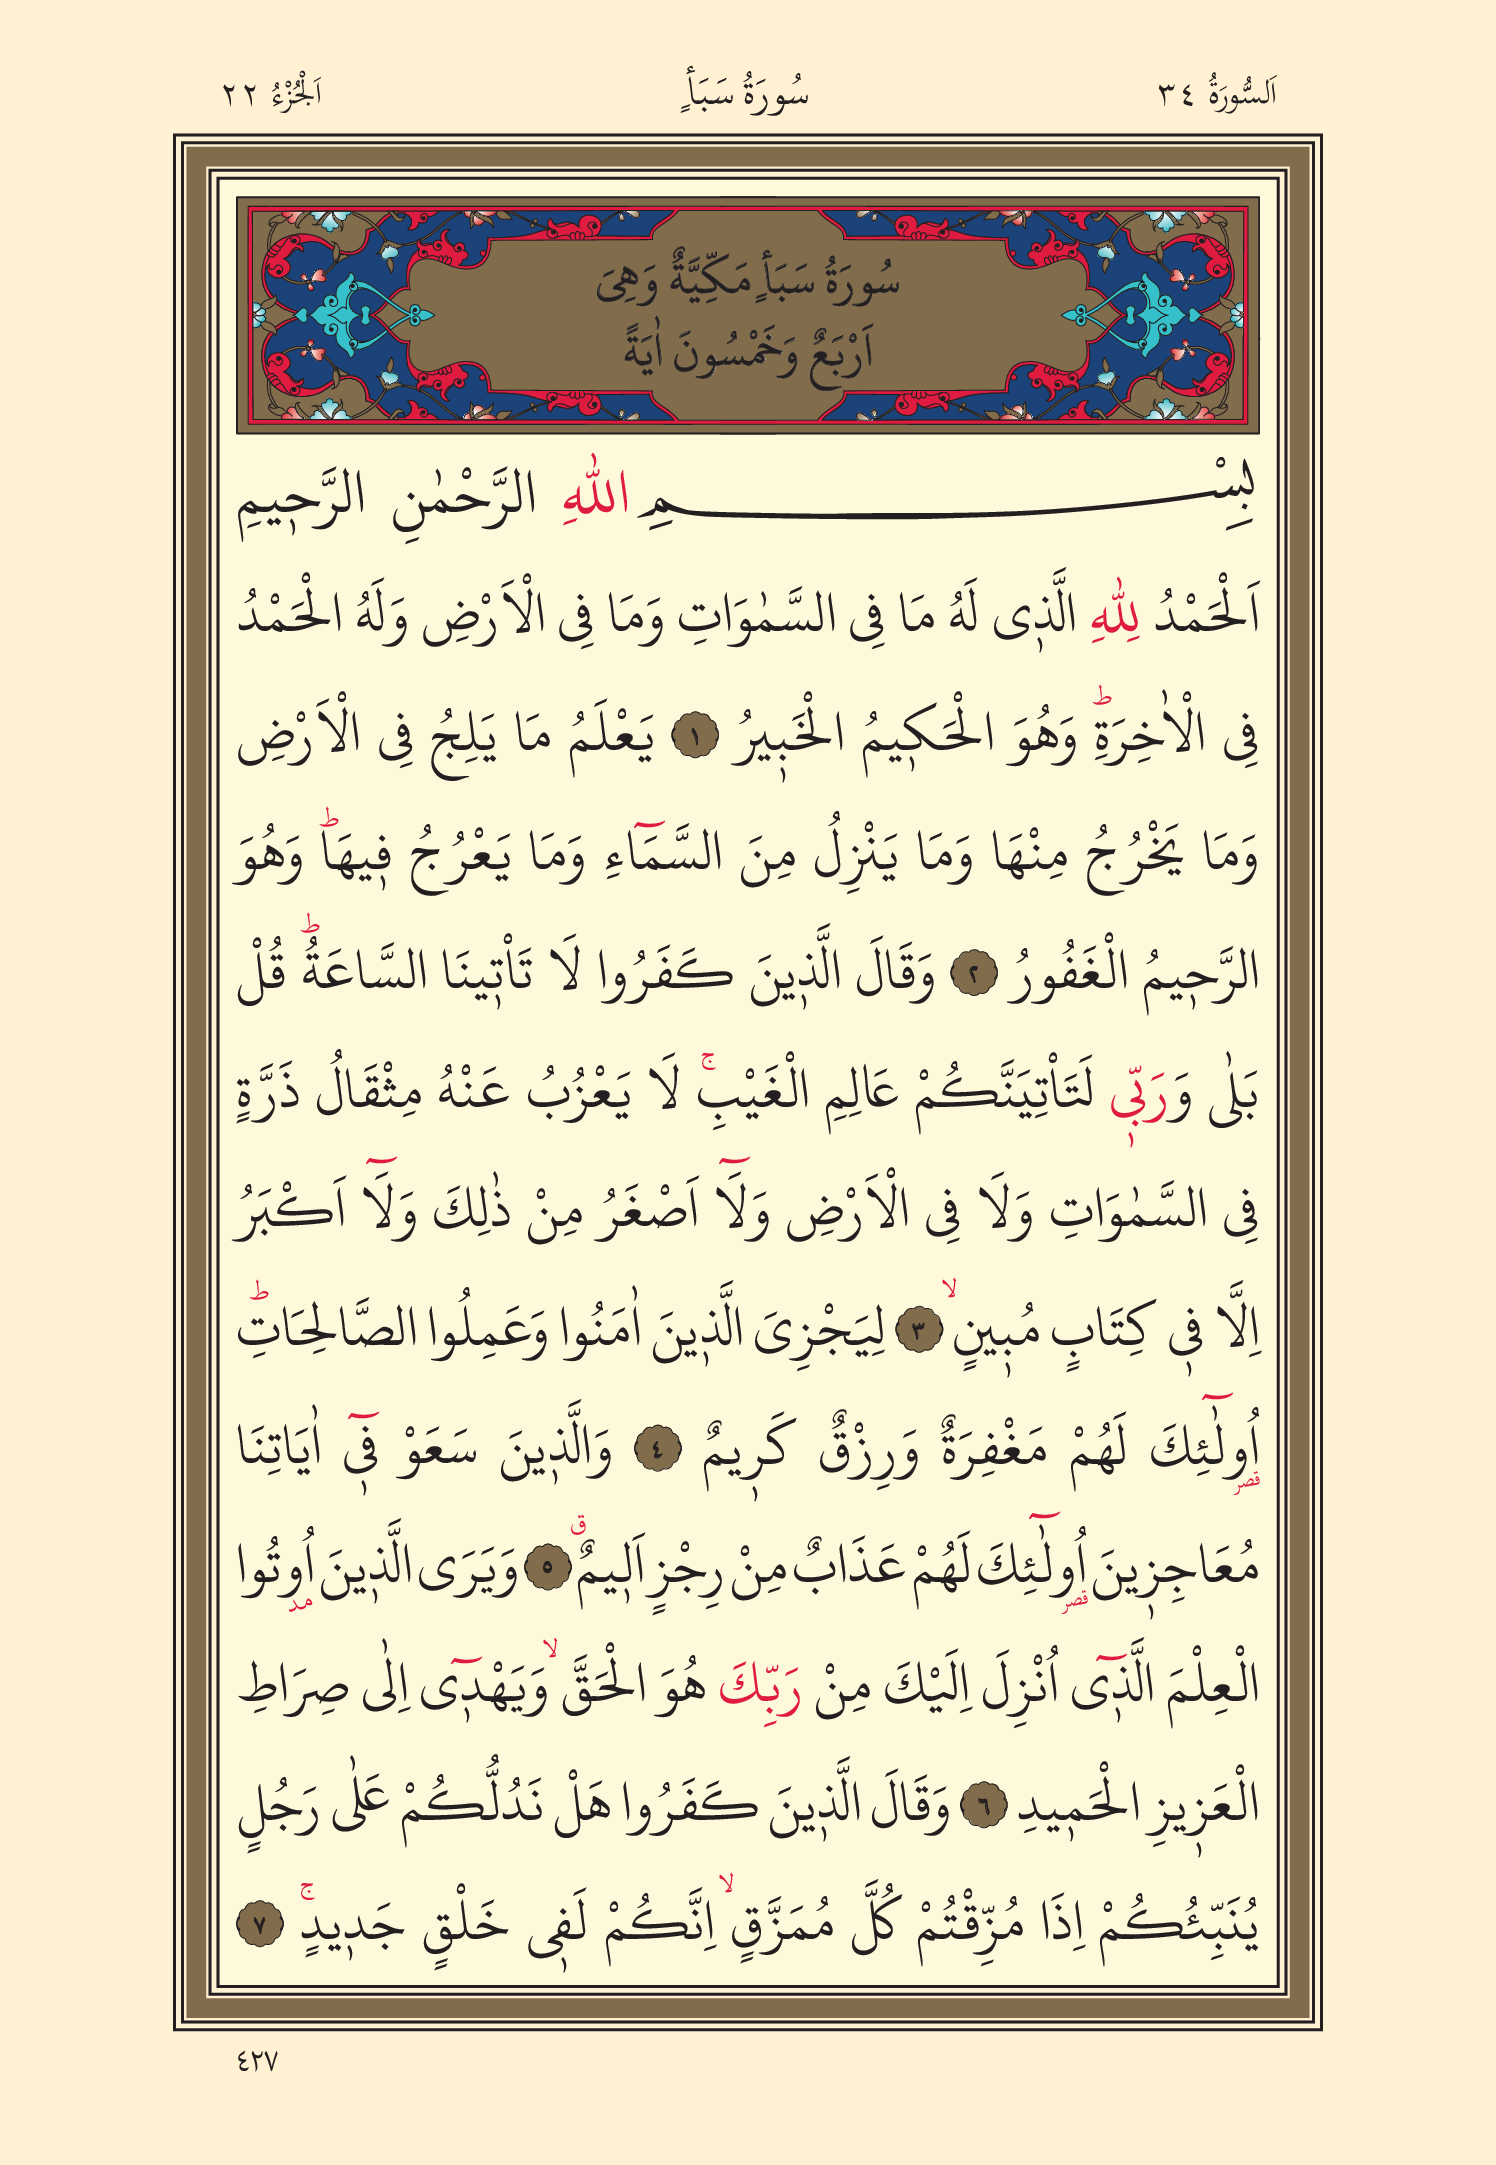 اَلسُّورَةُ ٣٤ سُورَةُ سَبَأٍ اَلْجُزْءُ ٢٢
سُورَةُ سَبَأٍ مَكِّيَّةٌ وَهِىَ
اَرْبَعٌ وَخَمْسُونَ اٰيَةً
بِسْمِ اللّٰهِ الرَّحْمٰنِ الرَّح۪يمِ
اَلْحَمْدُ لِلّٰهِ الَّذ۪ى لَهُ مَا فِى السَّمٰوَاتِ وَمَا فِى الْاَرْضِ وَلَهُ الْحَمْدُ
فِى الْاٰخِرَةِؕ وَهُوَ الْحَك۪يمُ الْخَب۪يرُ ١ يَعْلَمُ مَا يَلِجُ فِى الْاَرْضِ
وَمَا يَخْرُجُ مِنْهَا وَمَا يَنْزِلُ مِنَ السَّمَٓاءِ وَمَا يَعْرُجُ ف۪يهَاؕ وَهُوَ
الرَّح۪يمُ الْغَفُورُ ٢ وَقَالَ الَّذ۪ينَ كَفَرُوا لَا تَاْت۪ينَا السَّاعَةُؕ قُلْ
بَلٰى وَرَبّ۪ى لَتَاْتِيَنَّكُمْ عَالِمِ الْغَيْبِۚ لَا يَعْزُبُ عَنْهُ مِثْقَالُ ذَرَّةٍ
فِى السَّمٰوَاتِ وَلَا فِى الْاَرْضِ وَلَٓا اَصْغَرُ مِنْ ذٰلِكَ وَلَٓا اَكْبَرُ
اِلَّا ف۪ى كِتَابٍ مُب۪ينٍۙ ٣ لِيَجْزِىَ الَّذ۪ينَ اٰمَنُوا وَعَمِلُوا الصَّالِحَاتِؕ
اُو۬لٰٓئِكَ قصر لَهُمْ مَغْفِرَةٌ وَرِزْقٌ كَر۪يمٌ ٤ وَالَّذ۪ينَ سَعَوْ ف۪ٓى اٰيَاتِنَا
مُعَاجِز۪ينَ اُولٰٓئِكَ قصر لَهُمْ عَذَابٌ مِنْ رِجْزٍ اَل۪يمٌ ق ٥ وَيَرَى الَّذ۪ينَ اُوتُوا مد
الْعِلْمَ الَّذ۪ٓى اُنْزِلَ اِلَيْكَ مِنْ رَبِّكَ هُوَ الْحَقَّۙ وَيَهْد۪ٓى اِلٰى صِرَاطِ
الْعَز۪يزِ الْحَم۪يدِ ٦ وَقَالَ الَّذ۪ينَ كَفَرُوا هَلْ نَدُلُّكُمْ عَلٰى رَجُلٍ
يُنَبِّئُكُمْ اِذَا مُزِّقْتُمْ كُلَّ مُمَزَّقٍۙ اِنَّكُمْ لَف۪ى خَلْقٍ جَد۪يدٍۚ ٧
٤٢٧